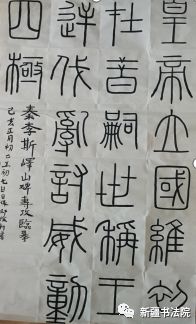 皇帝立國維初
在昔嗣世稱王
討伐亂逆威動
四極
秦李斯嶧山碑
己亥正月初
新疆书法院